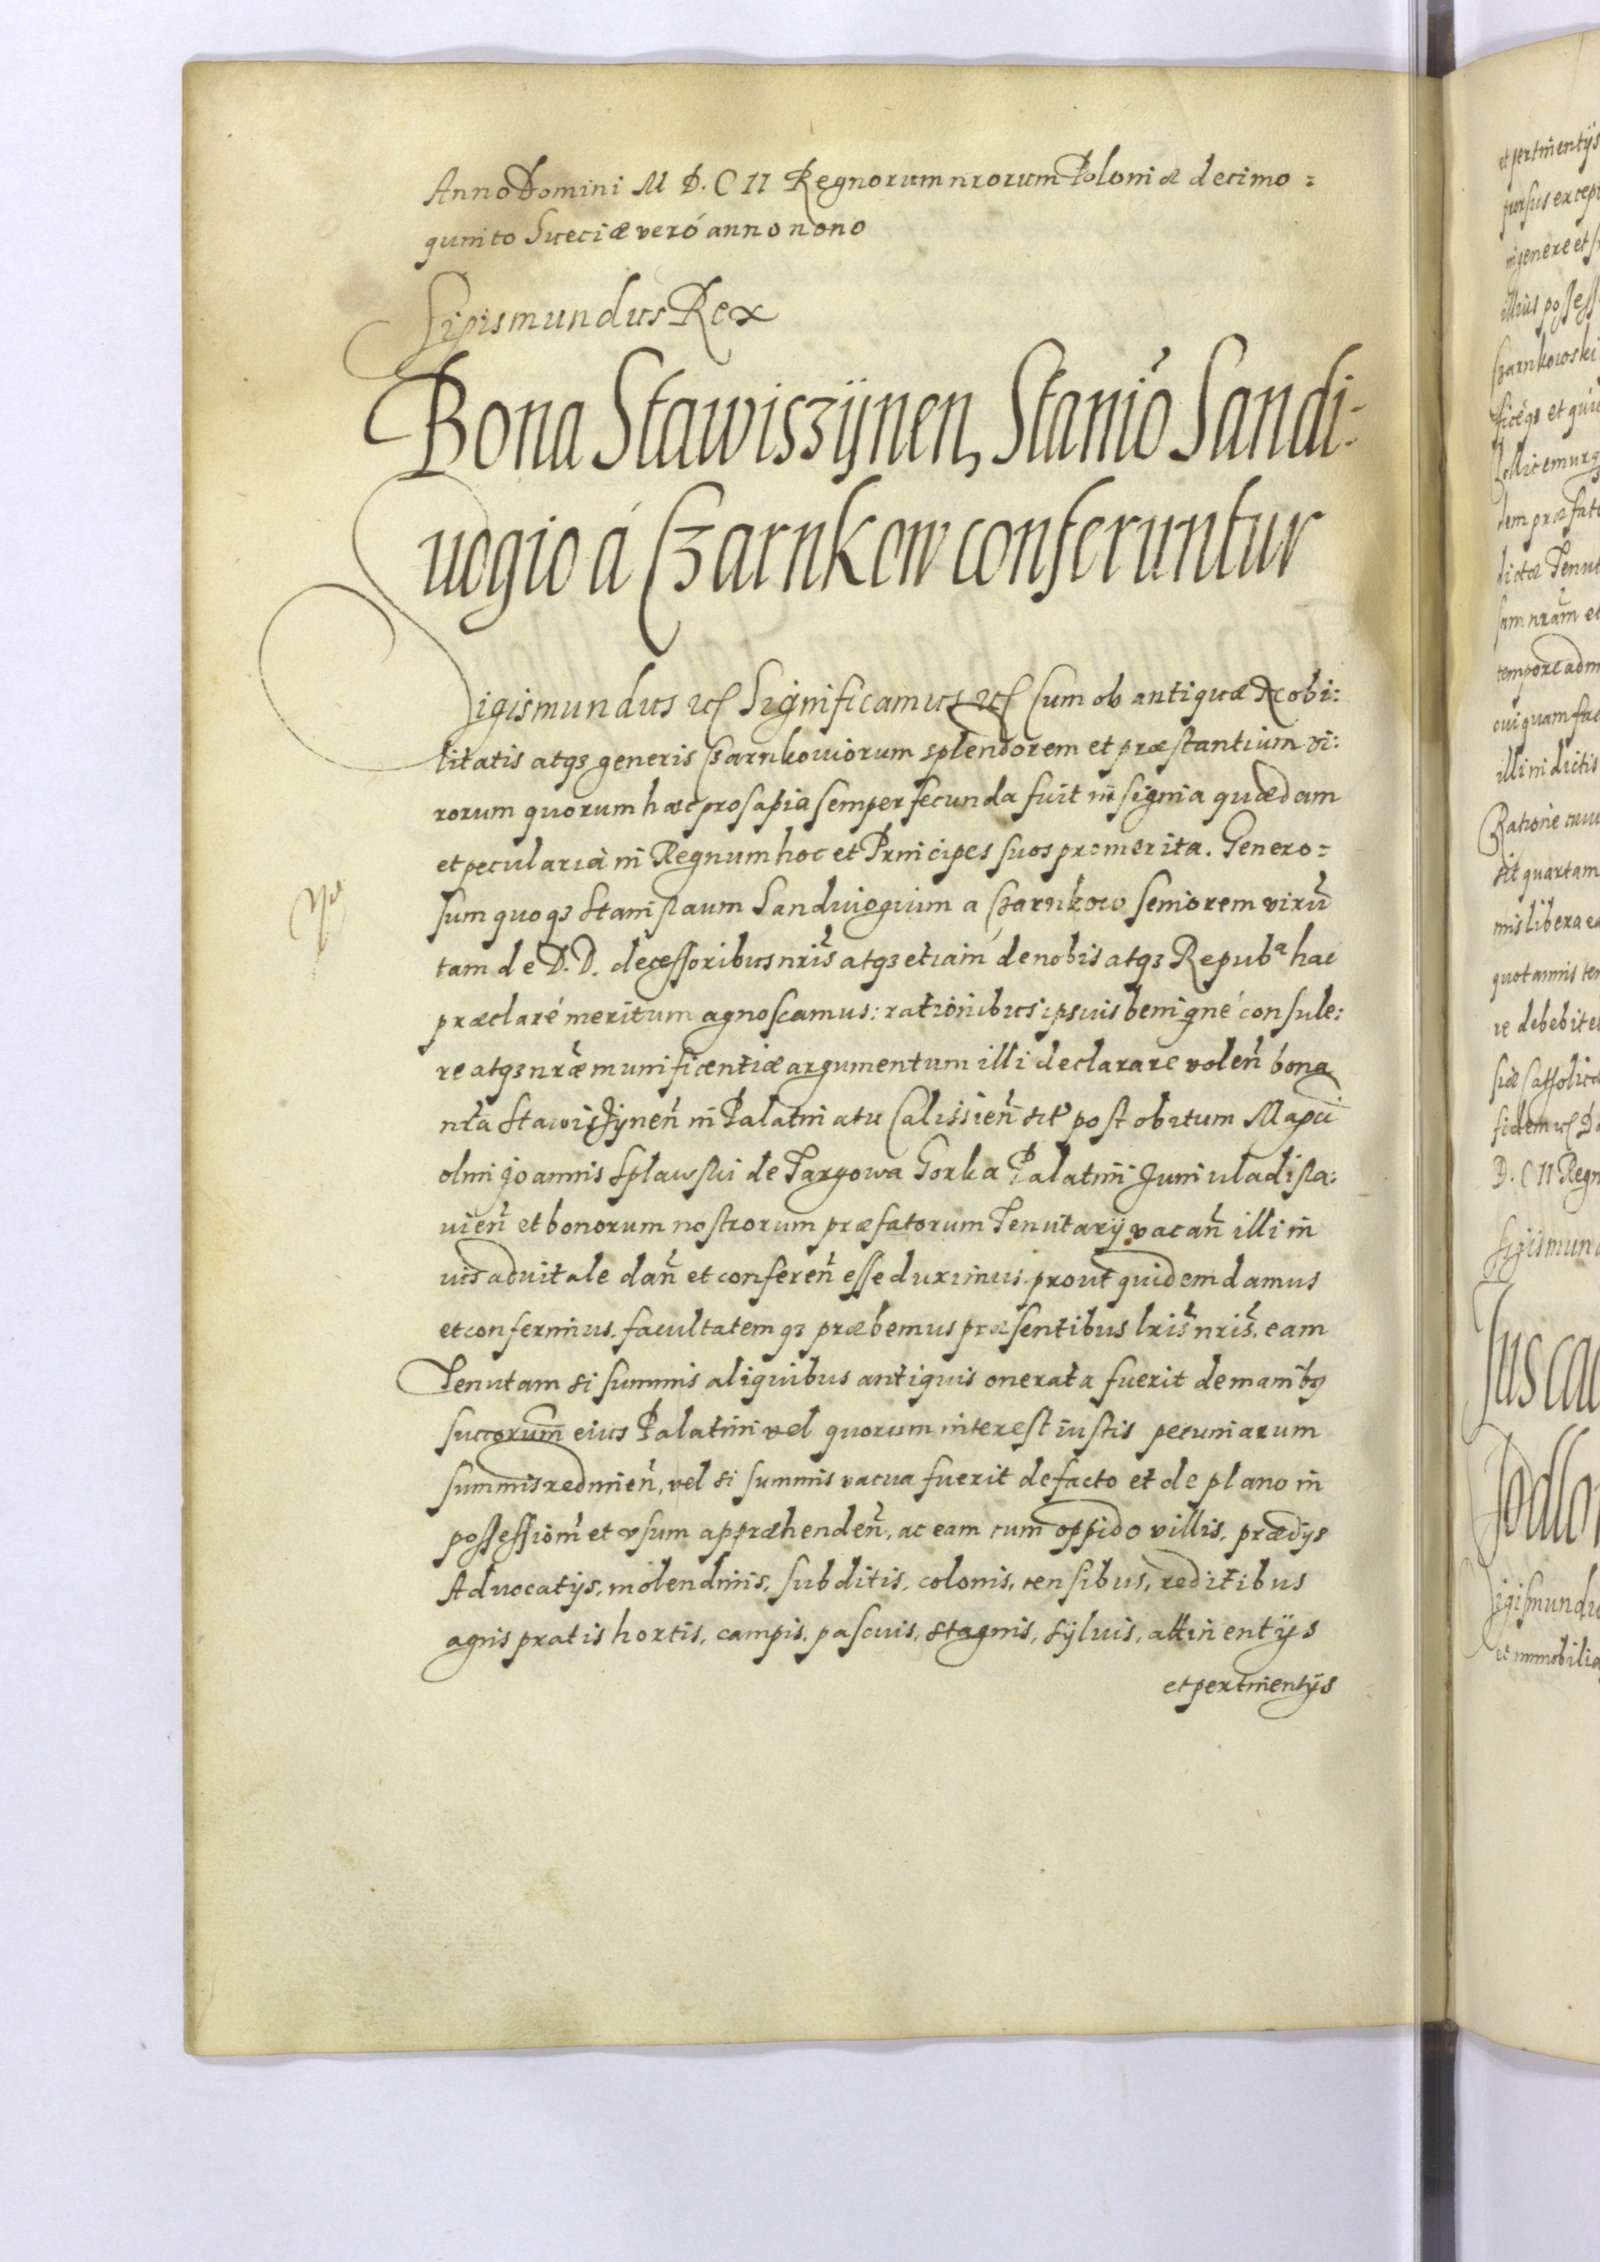 Anno Domini M D. C II Regnorum nrorum Poloniæ decimo =
quinto Sueciæ veró anno nono
Sigismundus Rex
Bona Stawiszÿnen, Stanió Sandi-
uogio á Czarnkow conferuntur
Sigismundus etc Significamus etc Cum ob antiquæ Nobi:
litatis atqз generis Czarnkouiorum splendorem et præstantium vi:
rorum quorum hæc prosapia semper fecunda fuit insignia quædam
et pecularia in Regnum hoc et Principes suos promerita. Genero=
sum quoqз Stanislaum Sandiuogium a Czarnkow seniorem virū
tam de D. D. decessoribus nris atqз etiam de nobis atqз Repubᵃ hac
præclaré meritum agnoscamus: rationibus ipsius benigné consule:
re atqз nræ munificentiæ argumentum illi declarare volen bona
nra Stawiszÿnen in Palatinatu Calissien sit post obitum Magci
olim Joannis Splawski de Targowa Gorka Palatini Juniuladisla:
uien et bonorum nostrorum præfatorum Tenutarÿ vacan illi in
uis aduitale dan et conferen esse duximus. prout quidem damus
et conferimus. facultatemqз præbemus præsentibus lris nris. eam
Tenutam si summis aliquibus antiquis onerata fuerit de manibз
succorum eius Palatini vel quorum interest iustis pecuniarum
summis redimen, vel si summis vacua fuerit de facto et de plano in
possessiom et vsum appræhenden, ac eam cum oppido villis, prædÿs
Aduocatÿs, molendinis, subditis, colonis, censibus, reditibus
agris pratis hortis, campis, pascuis, stagnis, syluis, attinentÿs
et pertinentÿs
et pertinentÿs
ingenere et
illius possess
Czarnkowski
dictæ Tenut
tempore adm
illi in dictis
sit quartam
mis libera ea
quotannis ten
re debebit et
D. C II Regn
Sigismund
Jus cad
Sigismundu
et immobilia